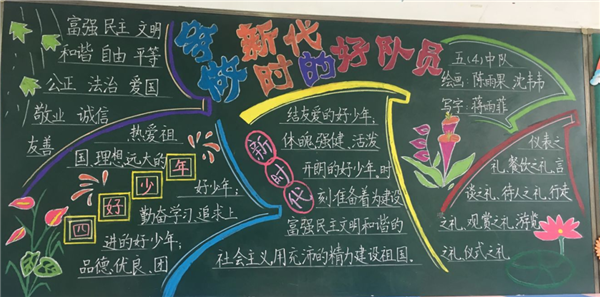 争做新时代的好队员
富强 民主 文明
和谐 自由 平等
公正 法治 爱国
敬业 诚信
友善
四好少年
热爱祖
国、理想远大的
好少年;
勤奋学习、追求上
进的好少年;
品德、优良、团
新时代
结友爱的好少年;
体魄强健、活泼
开朗的好少年,时
刻准备着为建设
富强民主文明和谐的
社会主义用充沛的精力建设祖国.
五(4)中队
绘画:陈雨果 沈韦韦
写字:蒋雨菲
仪表之
礼、餐饮之礼、言
谈之礼、待人之礼、行走
之礼、观赏之礼、游览
之礼、仪式之礼.